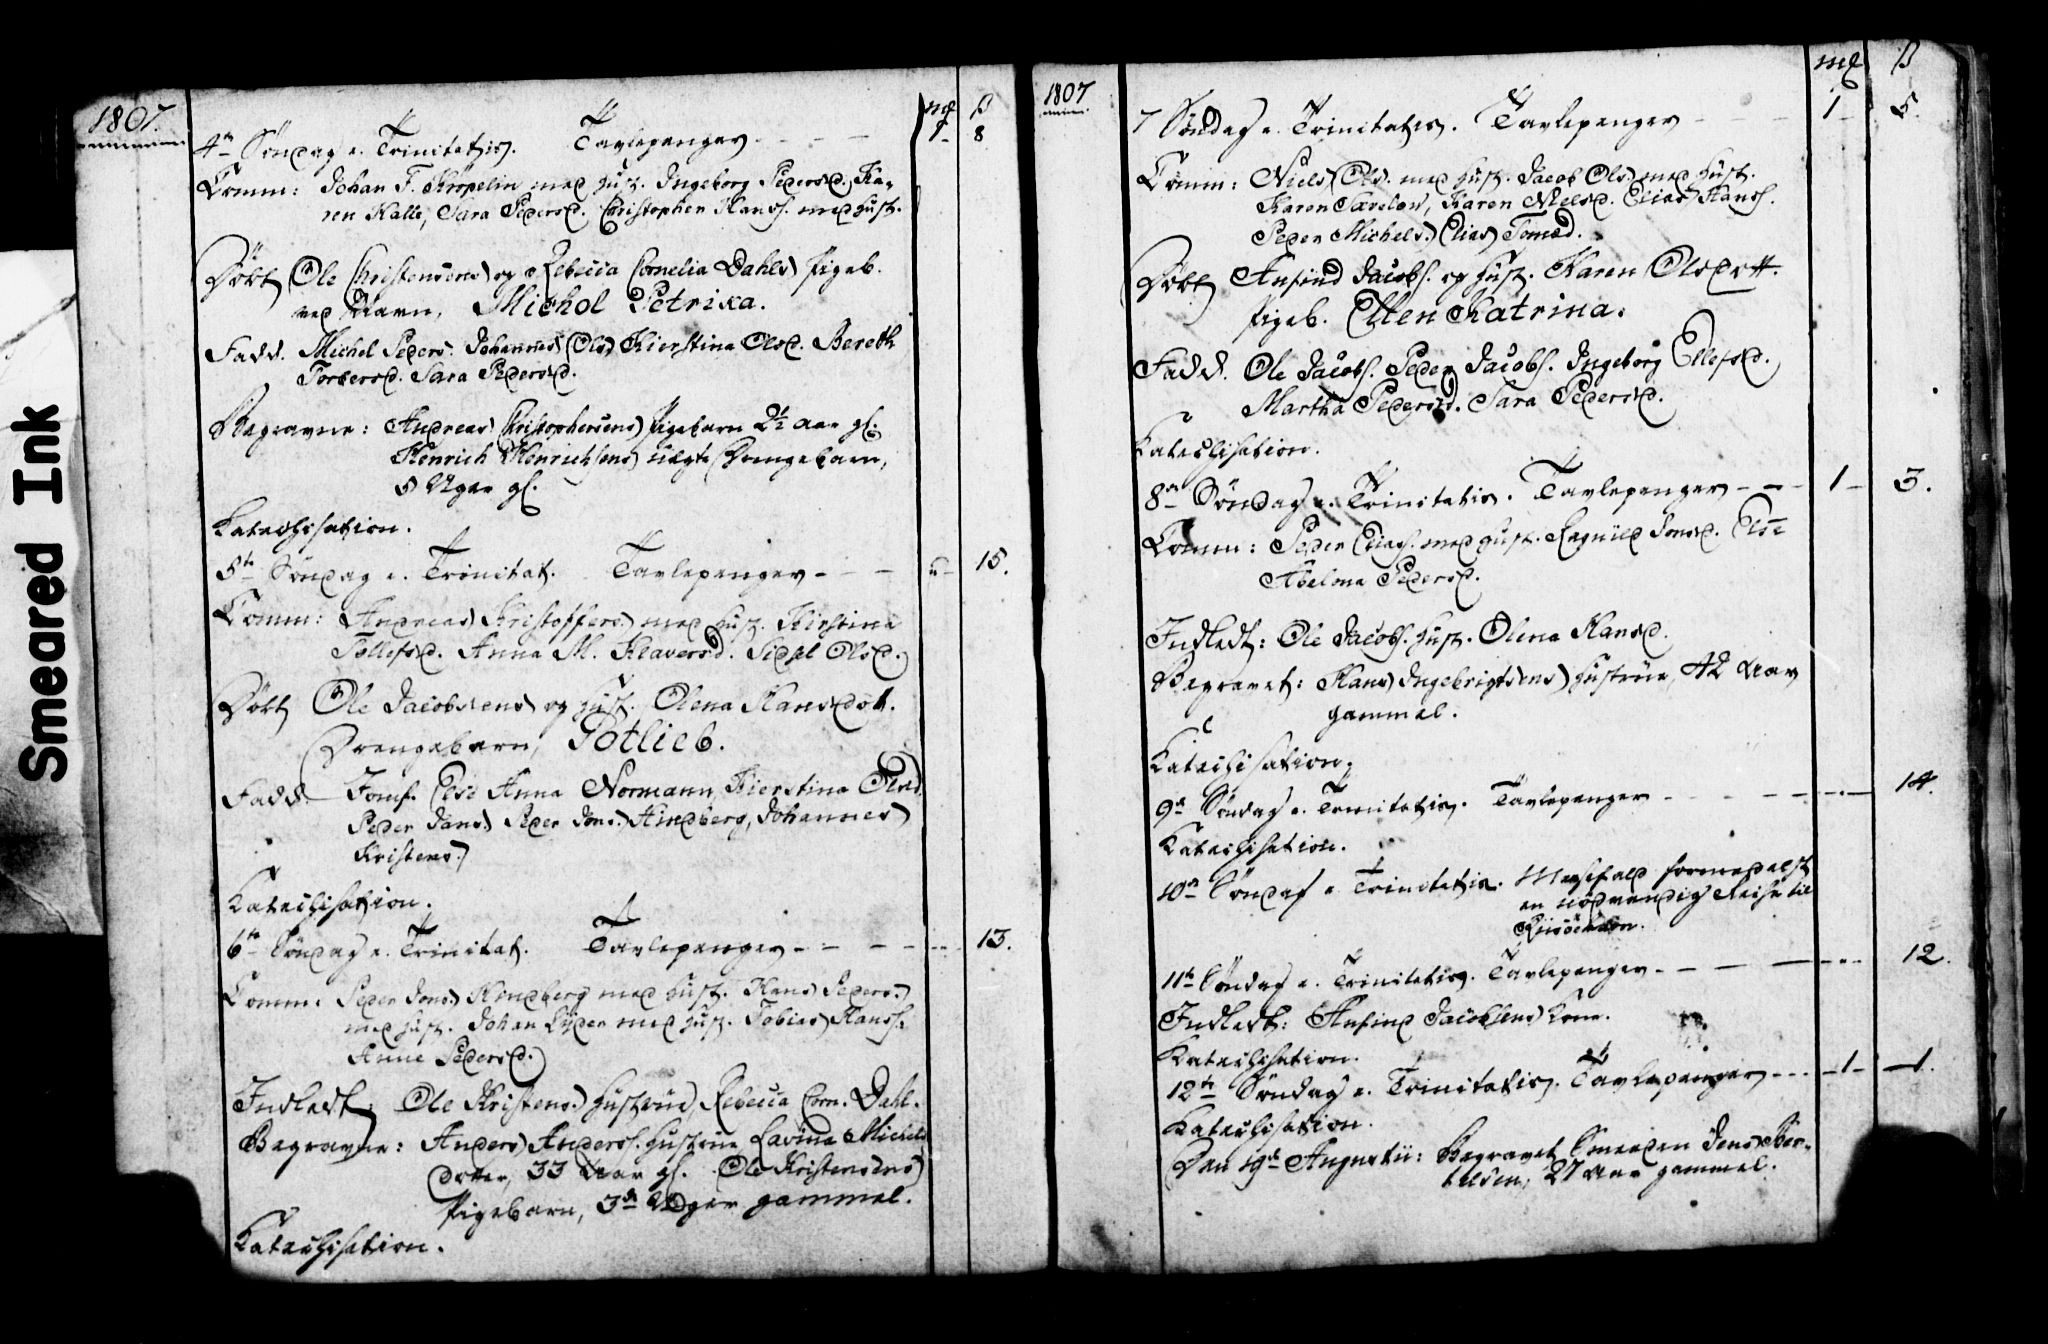 Smeared Ink
1807.
mk ß
4de Søndag e. Trinitatis. Tavlepenger - - - 1 - 8
Comm: Johan F. Kröpelin med Hust. Ingeborg Pedersd. Ka-
ren Halle, Sara Pedersd. Christopher Hanss. med Hust.
Døbt Ole Christensens og Rebecca Cornelia Dahls Pigeb.
ved Navn, Michol Petrika.
Fadd. Michel Peders. Johannes Ols. Kierstina Olsd. Bereth
Torbersd. Sara Pedersd.
Begravne: Andreas Christophersens Pigebarn 2½ Aar gl.
Henrich Henrichsens uægte Drengebarn,
5 Uger gl.
Katechisation.
5te Søndag e. Trinitat. Tavlepenger - - - " - 15.
Comm: Andreas Kristoffers. med Hust. Kirstina
Tollefsd. Anna M. Klaversd. Sidsel Olsd.
Døbt Ole Jacobsens og Hust. Olena Hansdott.
Drengebarn, Gotlieb.
Fadd. Jomf. Else Anna Normann, Kierstina Olsd.
Peder Jans. Peder Jons. Hindberg, Johannes
Kristens.
Katechisation.
6te Søndag e. Trinitat. Tavlepenger - - - - 13.
Comm: Peder Jons. Hindberg med Hust. Hans Peders.
med Hust. Johan Lyder med Hust. Tobias Hanss.
Anne Pedersd.
Indledt: Ole Kristens. Hustrue, Rebecca Corn. Dahl.
Begravne: Anders Anderss. Hustrue Lavina Michels
dotter, 33 Aar gl. Ole Kristensens
Pigebarn, 3de Uger gammel.
Katechisation.
1807
mk ß
7 Søndag e. Trinitatis. Tavlepenger - - - 1 - 5.
Comm: Niels Ols. med Hust. Jacob Ols. med Hust.
Karen Sævelow, Karen Nielsd. Elias Hanss.
Peder Michels. Elias Tomæd.
Døbt Anfind Jacobs. og Hust. Karen Olsdott.
Pigeb. Ellen Katrina.
Fadd. Ole Jacobs. Peder Jacobs. Ingeborg Ellefsd.
Martha Pedersd. Sara Pedersd.
Katechisation.
8de Søndag e. Trinitatis. Tavlepenger - - - 1 - 3.
Comm: Peder Elias. med Hust. Ragnild Jonsd. Else
Abelona Pedersd.
Indledt: Ole Jacobs. Hust. Olena Hansd.
Begravet: Hans Ingebrigtsens Hustrue, 42 Aar
gammel.
Katechisation.
9de Søndag e. Trinitatis. Tavlepenger - - - - 14.
Katechisation.
10de Søndag e. Trinitatis. Messefald formedelst
en nødvendig Reise til
11te Søndag e. Trinitatis. Tavlepenger - - - - 12.
Indledt: Anfind Jacobsens Kone.
Katechisation.
12te Søndag e. Trinitatis. Tavlepenger - - - 1 - 1.
Katechisation.
Den 19de Augustii: Begravet Smeeden Jens Ber-
telsen, 27 Aar gammel.